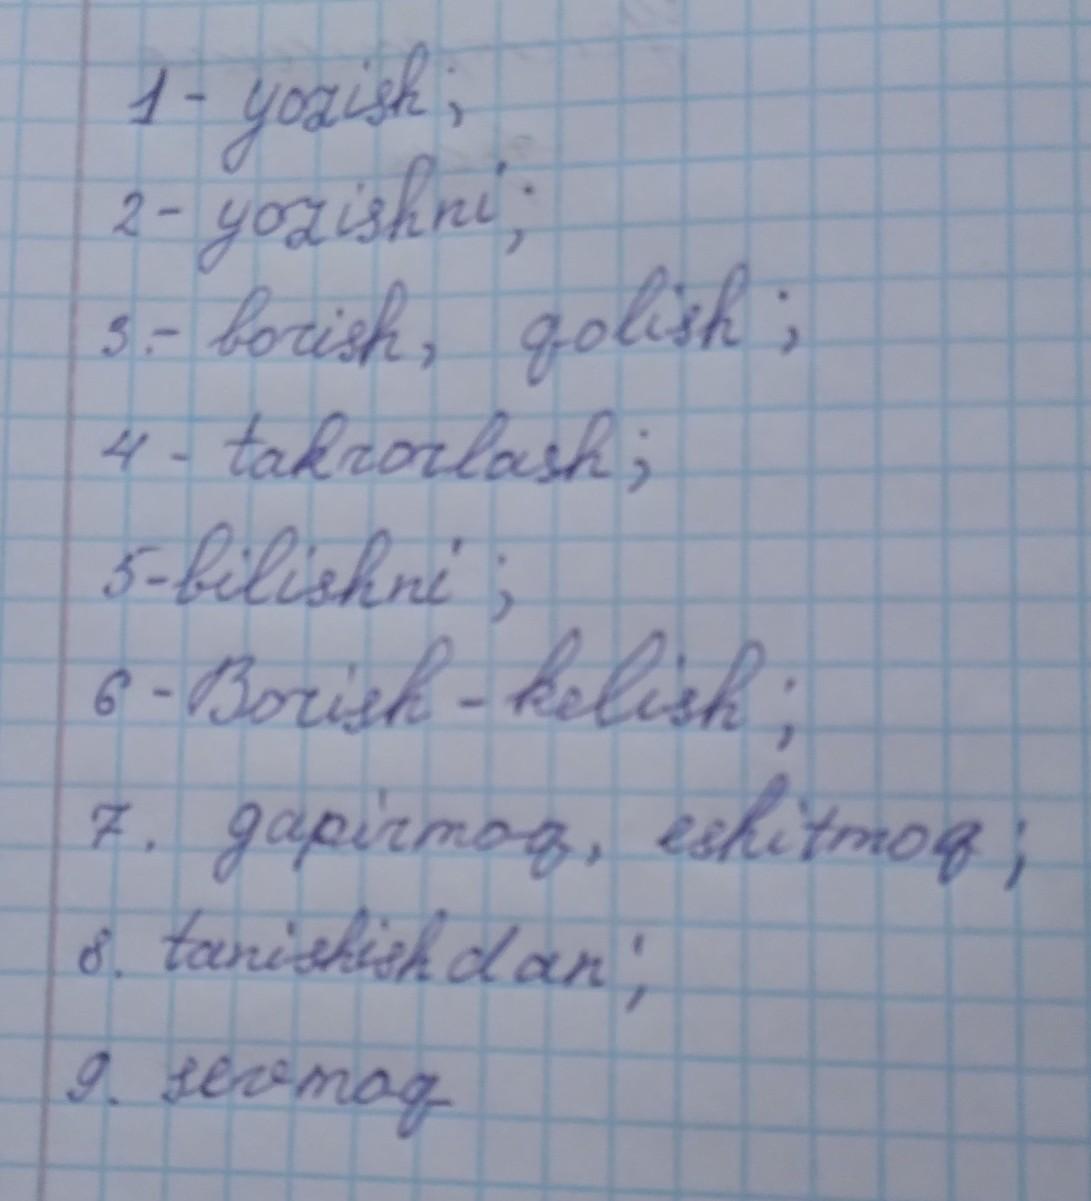 1 - yozish;
2 - yozishni;
3. - borish, qolish;
4 - takrorlash;
5 - bilishni;
6 - Borish - kelish;
7. gapirmoq, eshitmoq;
8. tanishishdan;
9. sevmoq